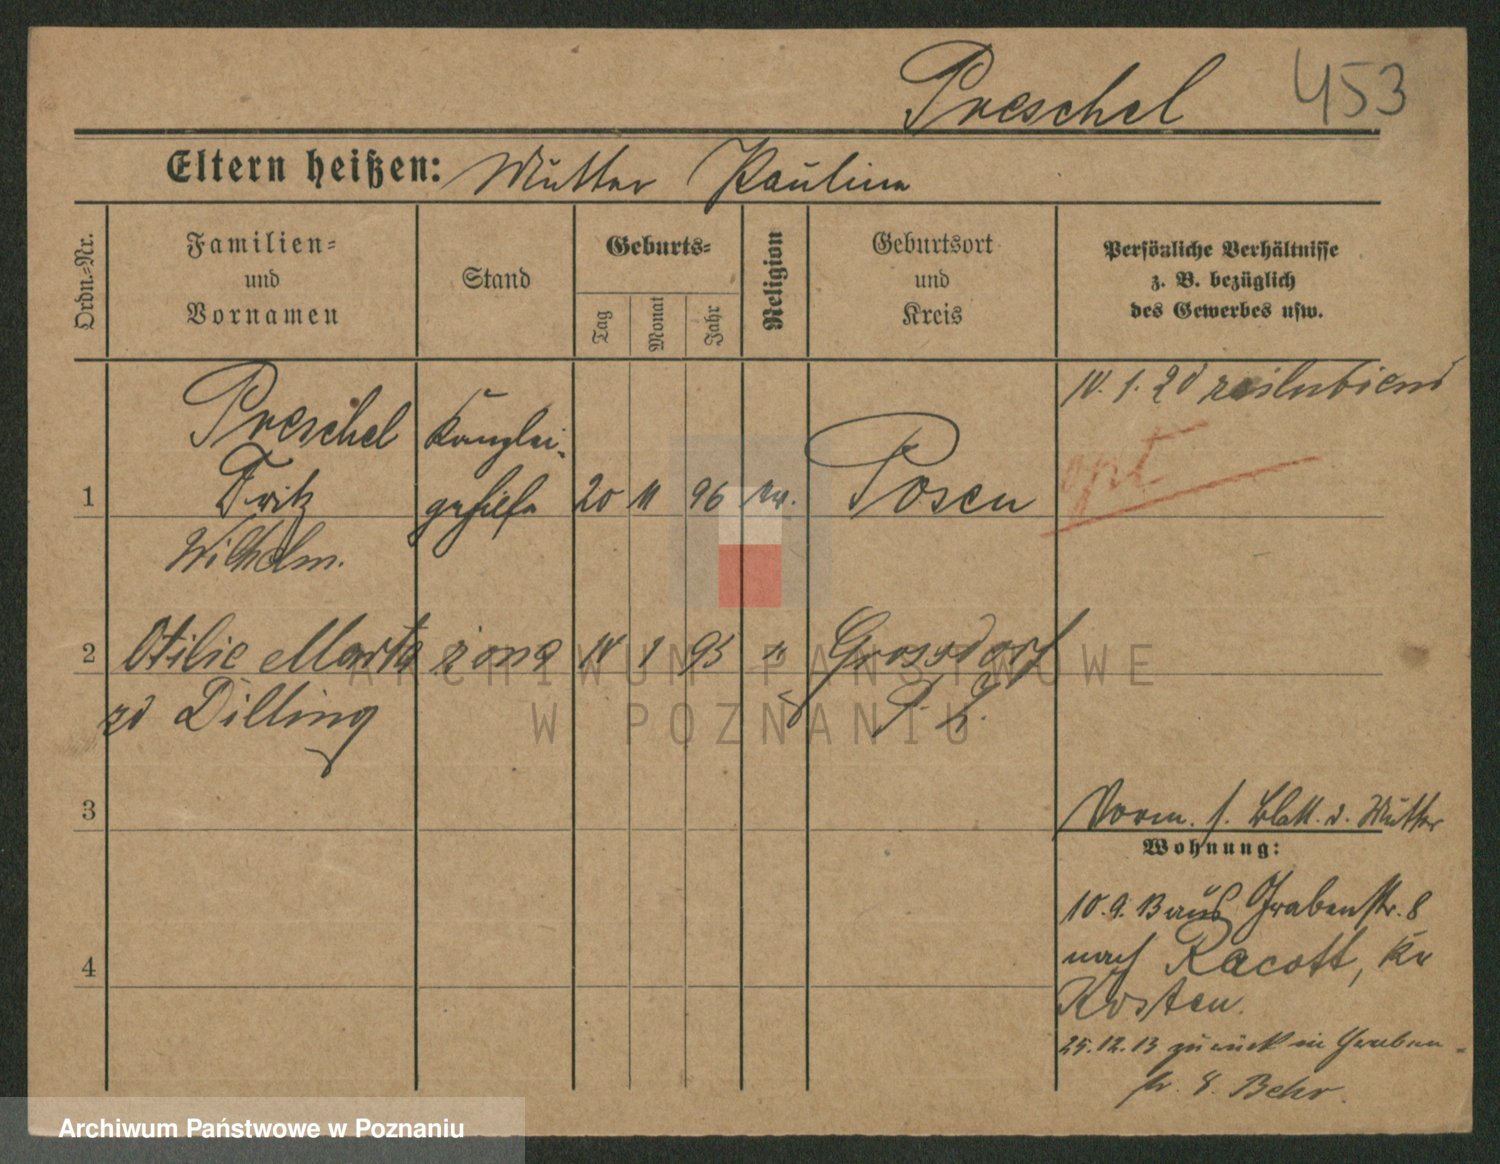 Preschel 453
Eltern heißen: Mutter Pauline
Ordn.-Nr.
Familien-
und
Vornamen
Stand
Geburts-
Tag
Monat
Jahr
Religion
Geburtsort
und
Kreis
Persönliche Verhältnisse
z. B. bezüglich
des Gewerbes usw.
1
Preschel
Fritz
Wilhelm.
Kanzlei-
gehilfe
20 11 96 ev.
Posen
opt
2
Otilie Marta żona 1 95 "
zd Dilling
Grossdorf
3
Vorm. s. Blatt. d. Mutter
Wohnung:
4
10.9.13 aus Grabenstr. 8
nach Racott, Kr
Kosten.
25.12.13 zurück in Graben-
str. 8. Behr.
ARCHIWUM PAŃSTWOWE
W POZNANIU
Archiwum Państwowe w Poznaniu